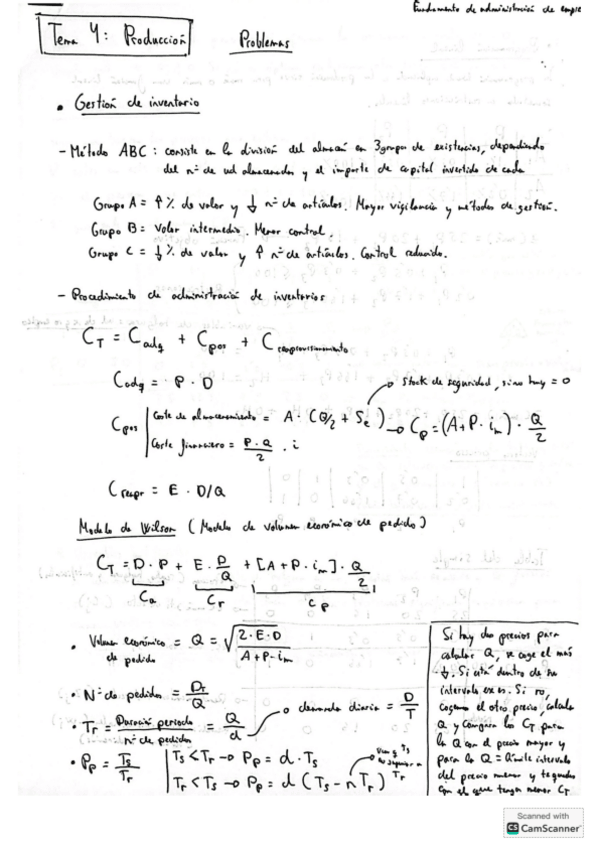 Fundamento de administración de empre
Tema 4: Producción
Problemas
• Gestión de inventario
- Método ABC: consiste en la división del almacén en 3 grupos de existencias, dependiendo
del nº de ud almacenados y el importe de capital invertido de cada
Grupo A = ↑ % de valor y ↓ nº de artículos. Mayor vigilancia y métodos de gestión.
Grupo B = Valor intermedio. Menor control.
Grupo C = ↓ % de valor y ↑ nº de artículos. Control reducido.
- Procedimiento de administración de inventarios
C_T = C_adq + C_pos + C_reaprovisionamiento
C_adq = P · D
stock de seguridad, si no hay = 0
C_pos | Coste de almacenamiento = A · (Q/2 + S_e) → C_p = (A + P · i_m) · Q/2
Coste financiero = P · Q / 2 · i
C_reapr = E · D/Q
Modelo de Wilson (Modelo de volumen económico de pedido)
C_T = D · P + E · D/Q + [A + P · i_m] · Q/2
C_a C_r C_p
• Volumen económico de pedido = Q = √(2 · E · D / A + P · i_m)
• Nº de pedidos = D_T/Q
• Tr = Duración periodo / nº de pedidos = Q/d → demanda diaria = D/T
• P_p = Ts/Tr | Ts < Tr → P_p = d · Ts
Tr < Ts → P_p = d (Ts - n Tr)
Si hay dos precios para
calcular Q, se coge el más
↓. Si está dentro de su
intervalo ese es. Si no,
cogemos el otro precio, calcula
Q y compara los C_T para
la Q con el precio mayor y
para la Q = límite intervalo
del precio menor y te quedas
con el que tenga menor C_T
Scanned with
CS CamScanner